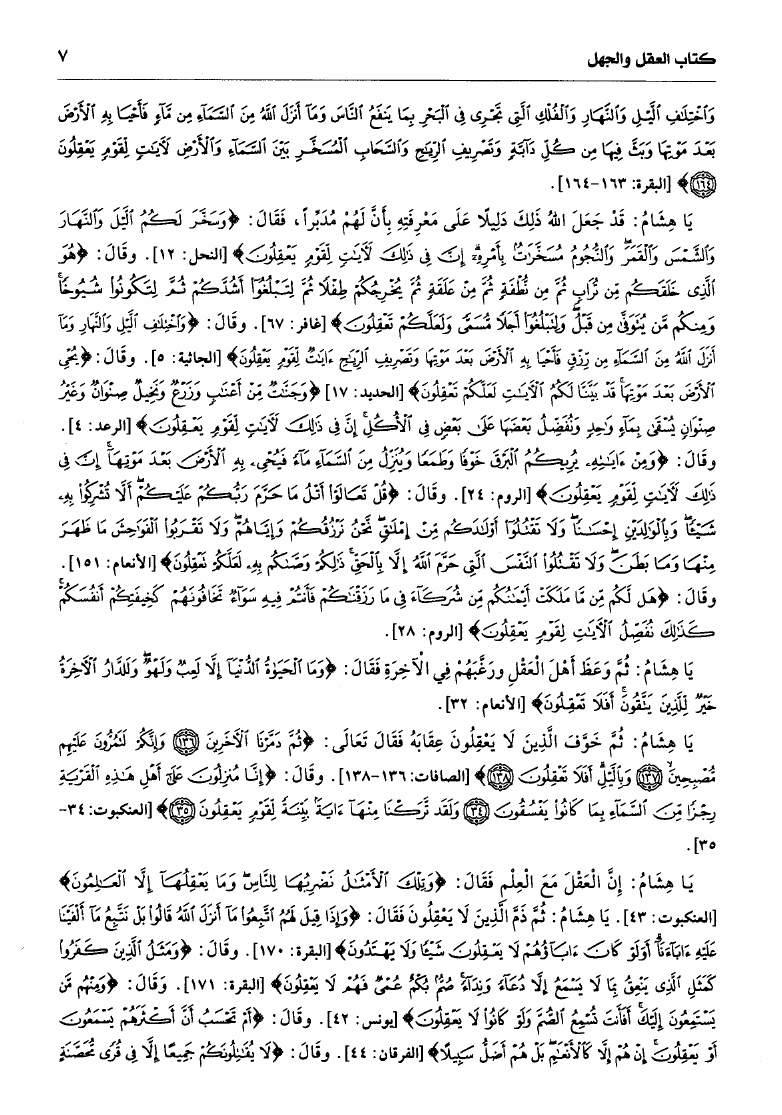 كتاب العقل والجهل ٧
وَاخْتِلَافِ اللَّيْلِ وَالنَّهَارِ وَالْفُلْكِ الَّتِي تَجْرِي فِي الْبَحْرِ بِمَا يَنفَعُ النَّاسَ وَمَا أَنزَلَ اللَّهُ مِنَ السَّمَاءِ مِن مَّاءٍ فَأَحْيَا بِهِ الْأَرْضَ
بَعْدَ مَوْتِهَا وَبَثَّ فِيهَا مِن كُلِّ دَابَّةٍ وَتَصْرِيفِ الرِّيَاحِ وَالسَّحَابِ الْمُسَخَّرِ بَيْنَ السَّمَاءِ وَالْأَرْضِ لَآيَاتٍ لِّقَوْمٍ يَعْقِلُونَ
﴿١٦٤﴾ [البقرة: ١٦٣-١٦٤].
يَا هِشَامُ: قَدْ جَعَلَ اللهُ ذَلِكَ دَلِيلًا عَلَى مَعْرِفَتِهِ بِأَنَّ لَهُمْ مُدَبِّراً، فَقَالَ: ﴿وَسَخَّرَ لَكُمُ اللَّيْلَ وَالنَّهَارَ
وَالشَّمْسَ وَالْقَمَرَ وَالنُّجُومُ مُسَخَّرَاتٌ بِأَمْرِهِ إِنَّ فِي ذَلِكَ لَآيَاتٍ لِّقَوْمٍ يَعْقِلُونَ﴾ [النحل: ١٢]. وقَالَ: ﴿هُوَ
الَّذِي خَلَقَكُم مِّن تُرَابٍ ثُمَّ مِن نُّطْفَةٍ ثُمَّ مِنْ عَلَقَةٍ ثُمَّ يُخْرِجُكُمْ طِفْلًا ثُمَّ لِتَبْلُغُوا أَشُدَّكُمْ ثُمَّ لِتَكُونُوا شُيُوخًا
وَمِنكُم مَّن يُتَوَفَّى مِن قَبْلُ وَلِتَبْلُغُوا أَجَلًا مُّسَمًّى وَلَعَلَّكُمْ تَعْقِلُونَ﴾ [غافر: ٦٧]. وقَالَ: ﴿وَاخْتِلَافِ اللَّيْلِ وَالنَّهَارِ وَمَا
أَنزَلَ اللَّهُ مِنَ السَّمَاءِ مِن رِّزْقٍ فَأَحْيَا بِهِ الْأَرْضَ بَعْدَ مَوْتِهَا وَتَصْرِيفِ الرِّيَاحِ آيَاتٌ لِّقَوْمٍ يَعْقِلُونَ﴾ [الجاثية: ٥]. وقَالَ: ﴿يُحْيِي
الْأَرْضَ بَعْدَ مَوْتِهَا قَدْ بَيَّنَّا لَكُمُ الْآيَاتِ لَعَلَّكُمْ تَعْقِلُونَ﴾ [الحديد: ١٧] ﴿وَجَنَّاتٌ مِّنْ أَعْنَابٍ وَزَرْعٌ وَنَخِيلٌ صِنْوَانٌ وَغَيْرُ
صِنْوَانٍ يُسْقَى بِمَاءٍ وَاحِدٍ وَنُفَضِّلُ بَعْضَهَا عَلَى بَعْضٍ فِي الْأُكُلِ إِنَّ فِي ذَلِكَ لَآيَاتٍ لِّقَوْمٍ يَعْقِلُونَ﴾ [الرعد: ٤].
وقَالَ: ﴿وَمِنْ آيَاتِهِ يُرِيكُمُ الْبَرْقَ خَوْفًا وَطَمَعًا وَيُنَزِّلُ مِنَ السَّمَاءِ مَاءً فَيُحْيِي بِهِ الْأَرْضَ بَعْدَ مَوْتِهَا إِنَّ فِي
ذَلِكَ لَآيَاتٍ لِّقَوْمٍ يَعْقِلُونَ﴾ [الروم: ٢٤]. وقَالَ: ﴿قُلْ تَعَالَوْا أَتْلُ مَا حَرَّمَ رَبُّكُمْ عَلَيْكُمْ أَلَّا تُشْرِكُوا بِهِ
شَيْئًا وَبِالْوَالِدَيْنِ إِحْسَانًا وَلَا تَقْتُلُوا أَوْلَادَكُم مِّنْ إِمْلَاقٍ نَّحْنُ نَرْزُقُكُمْ وَإِيَّاهُمْ وَلَا تَقْرَبُوا الْفَوَاحِشَ مَا ظَهَرَ
مِنْهَا وَمَا بَطَنَ وَلَا تَقْتُلُوا النَّفْسَ الَّتِي حَرَّمَ اللَّهُ إِلَّا بِالْحَقِّ ذَلِكُمْ وَصَّاكُم بِهِ لَعَلَّكُمْ تَعْقِلُونَ﴾ [الأنعام: ١٥١].
وقَالَ: ﴿هَل لَّكُم مِّن مَّا مَلَكَتْ أَيْمَانُكُم مِّن شُرَكَاءَ فِي مَا رَزَقْنَاكُمْ فَأَنتُمْ فِيهِ سَوَاءٌ تَخَافُونَهُمْ كَخِيفَتِكُمْ أَنفُسَكُمْ
كَذَلِكَ نُفَصِّلُ الْآيَاتِ لِقَوْمٍ يَعْقِلُونَ﴾ [الروم: ٢٨].
يَا هِشَامُ: ثُمَّ وَعَظَ أَهْلَ الْعَقْلِ ورَغَّبَهُمْ فِي الْآخِرَةِ فَقَالَ: ﴿وَمَا الْحَيَاةُ الدُّنْيَا إِلَّا لَعِبٌ وَلَهْوٌ وَلَلدَّارُ الْآخِرَةُ
خَيْرٌ لِّلَّذِينَ يَتَّقُونَ أَفَلَا تَعْقِلُونَ﴾ [الأنعام: ٣٢].
يَا هِشَامُ: ثُمَّ خَوَّفَ الَّذِينَ لَا يَعْقِلُونَ عِقَابَهُ فَقَالَ تَعَالَى: ﴿ثُمَّ دَمَّرْنَا الْآخَرِينَ ﴿١٣٦﴾ وَإِنَّكُمْ لَتَمُرُّونَ عَلَيْهِم
مُّصْبِحِينَ ﴿١٣٧﴾ وَبِاللَّيْلِ أَفَلَا تَعْقِلُونَ ﴿١٣٨﴾﴾ [الصافات: ١٣٦-١٣٨]. وقَالَ: ﴿إِنَّا مُنزِلُونَ عَلَى أَهْلِ هَذِهِ الْقَرْيَةِ
رِجْزًا مِّنَ السَّمَاءِ بِمَا كَانُوا يَفْسُقُونَ ﴿٣٤﴾ وَلَقَد تَّرَكْنَا مِنْهَا آيَةً بَيِّنَةً لِّقَوْمٍ يَعْقِلُونَ ﴿٣٥﴾﴾ [العنكبوت: ٣٤-
٣٥].
يَا هِشَامُ: إِنَّ الْعَقْلَ مَعَ الْعِلْمِ فَقَالَ: ﴿وَتِلْكَ الْأَمْثَالُ نَضْرِبُهَا لِلنَّاسِ وَمَا يَعْقِلُهَا إِلَّا الْعَالِمُونَ﴾
[العنكبوت: ٤٣]. يَا هِشَامُ: ثُمَّ ذَمَّ الَّذِينَ لَا يَعْقِلُونَ فَقَالَ: ﴿وَإِذَا قِيلَ لَهُمُ اتَّبِعُوا مَا أَنزَلَ اللَّهُ قَالُوا بَلْ نَتَّبِعُ مَا أَلْفَيْنَا
عَلَيْهِ آبَاءَنَا أَوَلَوْ كَانَ آبَاؤُهُمْ لَا يَعْقِلُونَ شَيْئًا وَلَا يَهْتَدُونَ﴾ [البقرة: ١٧٠]. وقَالَ: ﴿وَمَثَلُ الَّذِينَ كَفَرُوا
كَمَثَلِ الَّذِي يَنْعِقُ بِمَا لَا يَسْمَعُ إِلَّا دُعَاءً وَنِدَاءً صُمٌّ بُكْمٌ عُمْيٌ فَهُمْ لَا يَعْقِلُونَ﴾ [البقرة: ١٧١]. وَقَالَ: ﴿وَمِنْهُم مَّن
يَسْتَمِعُونَ إِلَيْكَ أَفَأَنتَ تُسْمِعُ الصُّمَّ وَلَوْ كَانُوا لَا يَعْقِلُونَ﴾ [يونس: ٤٢]. وقَالَ: ﴿أَمْ تَحْسَبُ أَنَّ أَكْثَرَهُمْ يَسْمَعُونَ
أَوْ يَعْقِلُونَ إِنْ هُمْ إِلَّا كَالْأَنْعَامِ بَلْ هُمْ أَضَلُّ سَبِيلًا﴾ [الفرقان: ٤٤]. وقَالَ: ﴿لَا يُقَاتِلُونَكُمْ جَمِيعًا إِلَّا فِي قُرًى مُّحَصَّنَةٍ